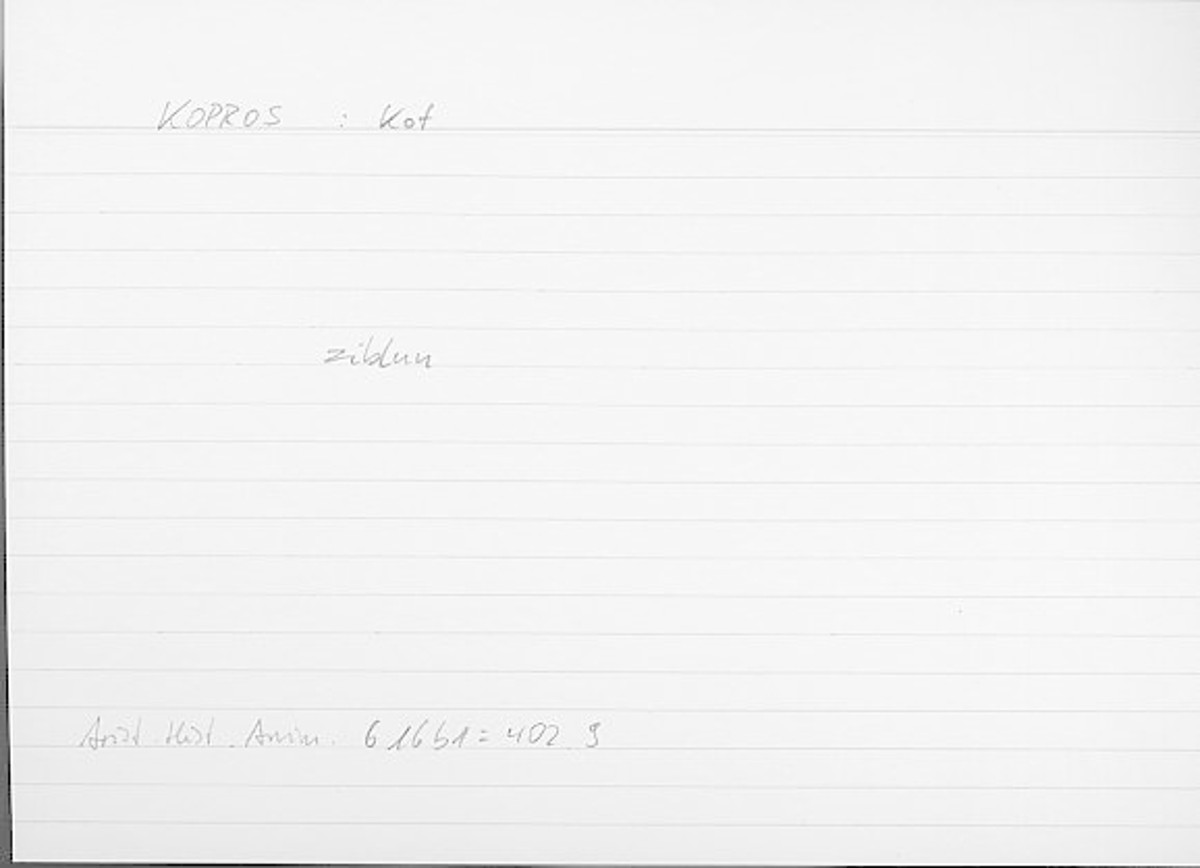 KOPROS : Kot
ziblun
Arist. Hist. Anim. 616b1 = 402 9